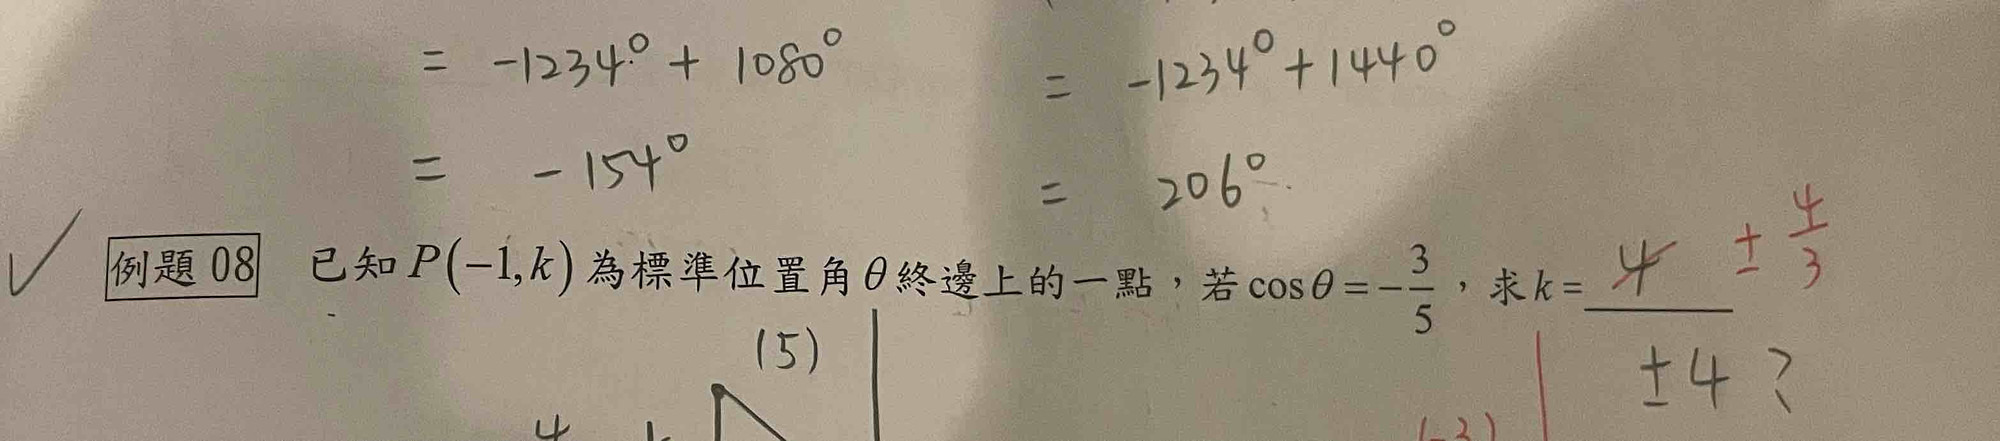 = -1234° + 1080°
= -1234° + 1440°
= -154°
= 206°
例題 08 已知 P(-1,k) 為標準位置角 θ 終邊上的一點，若 cosθ = -3/5，求 k = 4 ± 4/3
(5) ±4 ?
4
(-3)